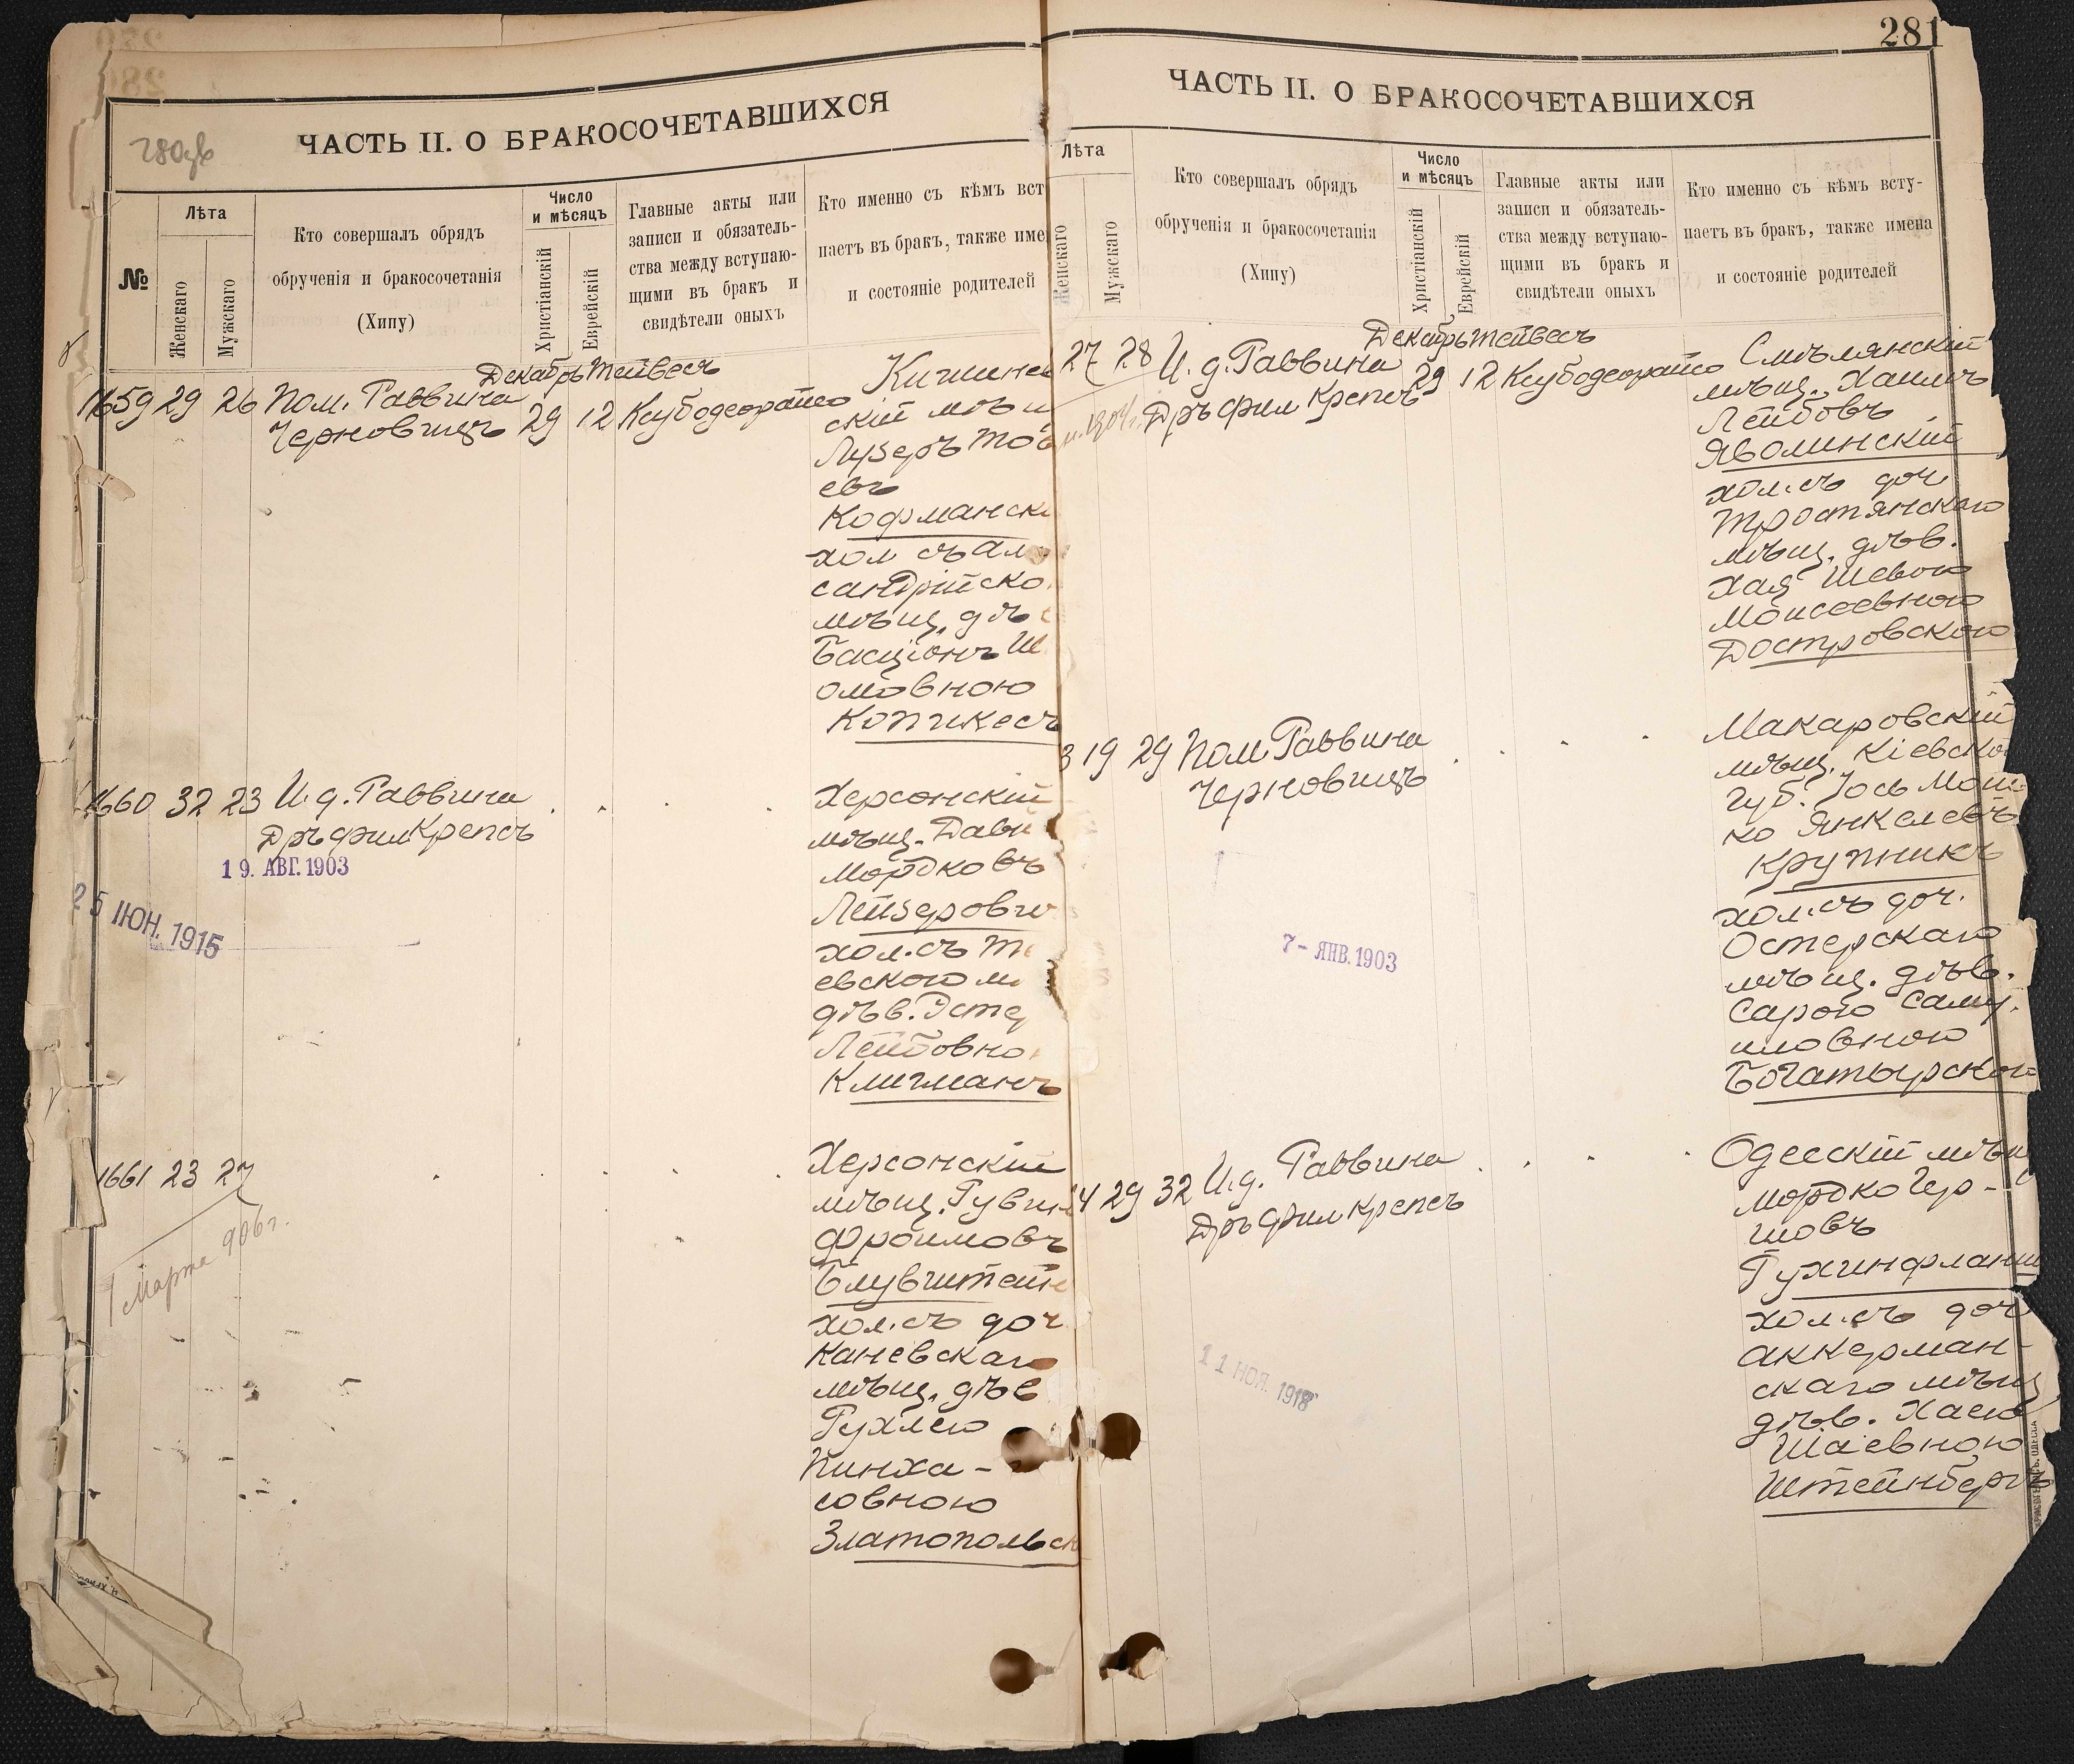 281
280зв
ЧАСТЬ II. О БРАКОСОЧЕТАВШИХСЯ
№
Лѣта
Женскаго
Мужскаго
Кто совершалъ обрядъ
обрученія и бракосочетанія
(Хипу)
Число
и мѣсяцъ
Христіанскій
Еврейскій
Главные акты или
записи и обязатель-
ства между вступаю-
щими въ бракъ и
свидѣтели оныхъ
Кто именно съ кѣмъ вст
паетъ въ бракъ, также име
и состояніе родителей
Декабрь Тейвесъ
1659 29 26 Пом. Раввина
Черновицъ
29 12
Кишинев
скій мѣщ
Лузеръ Тов
евъ
Кофманск
хол съ Ал
сандрійско
мѣщ. дѣ
Басціонъ Ш
омовною
Копикесъ
1660 32 23 И. д. Раввина
Дръ фил Крепсъ
19. АВГ. 1903
25 ІЮН. 1915
Херсонскій
мѣщ. Дави
Мордковъ
Лейзерови
хол. съ Т
евскою м
дѣв. Эсте
Лейбовно
Клигманъ
1661 23 27
1 Марта 906 г.
Херсонскій
мѣщ. Рувин
Фроимовъ
Блувштейн
хол. съ доч
Каневскаго
мѣщ. дѣв
Рухлею
Пинха-
совною
Златопольск
ЧАСТЬ II. О БРАКОСОЧЕТАВШИХСЯ
Лѣта
Женскаго
Мужскаго
Кто совершалъ обрядъ
обрученія и бракосочетанія
(Хипу)
Число
и мѣсяцъ
Христіанскій
Еврейскій
Главные акты или
записи и обязатель-
ства между вступаю-
щими въ бракъ и
свидѣтели оныхъ
Кто именно съ кѣмъ всту-
паетъ въ бракъ, также имена
и состояніе родителей
Декабрь Тейвесъ
27 28 И. д. Раввина
Дръ фил Крепсъ
29 12
Смѣлянскій
мѣщ. Хаимъ
Лейбовъ
Яволинскій
хол. съ доч
Тростянскаго
мѣщ. дѣв.
Хая Шевою
Моисеевною
Достровскою
3 19 29 Пом Раввина
Черновицъ
7 - ЯНВ. 1903
Макаровскій
мѣщ. Кіевско
губ. Іось Мош
ко Янкелевъ
Крупникъ
хол. съ доч.
Остерскаго
мѣщ. дѣв.
Сарою Саму.
иловною
Богатырскою
4 29 32 И. д. Раввина
Дръ фил Крепсъ
11 НОЯ. 1918
Одесскій мѣщ
Мордко Гер-
шовъ
хол. съ доч
Аккерман-
скаго мѣщ
дѣв. Хаею
Шаевною
Штейнбергъ